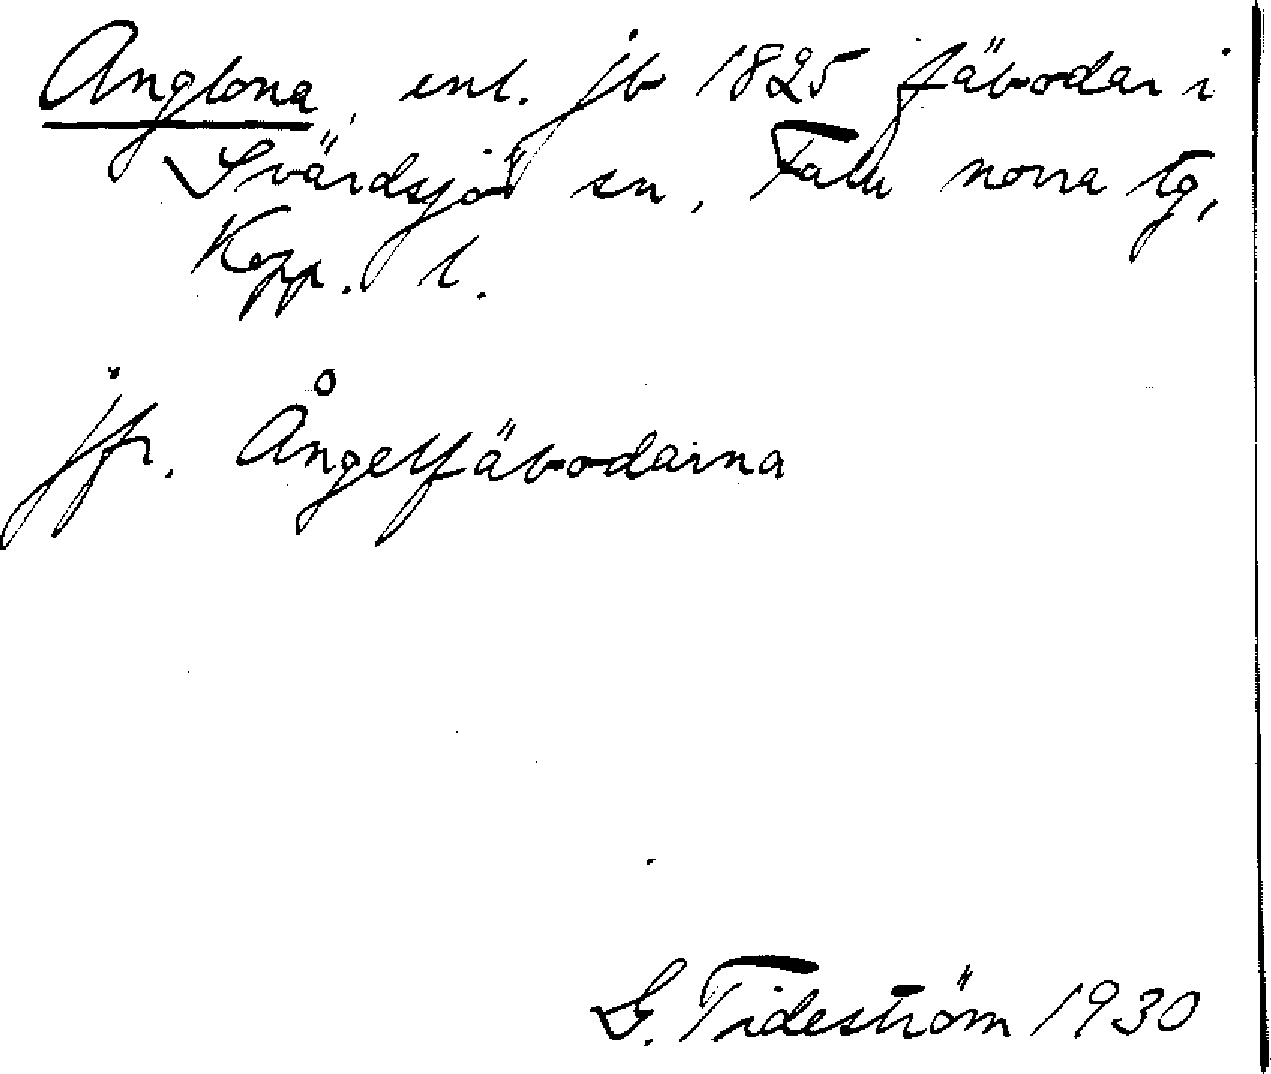 Anglona, enl. jb 1825 fäbodar i
Svärdsjö sn, Falu norra tg,
Kopp. l.
jfr. Ångelfäbodarna
G. Tideström 1930